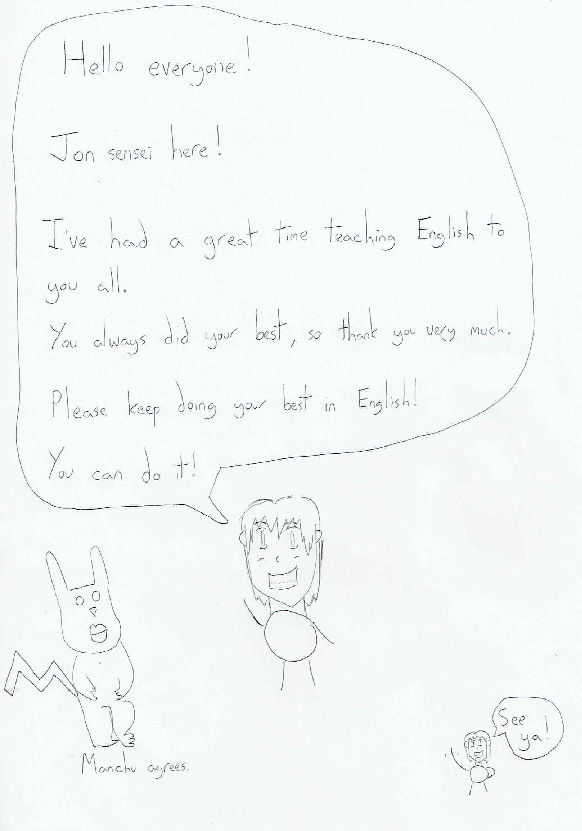 Hello everyone!
Jon sensei here!
I've had a great time teaching English to
you all.
You always did your best, so thank you very much.
Please keep doing your best in English!
You can do it!
Manchu agrees.
See
ya!